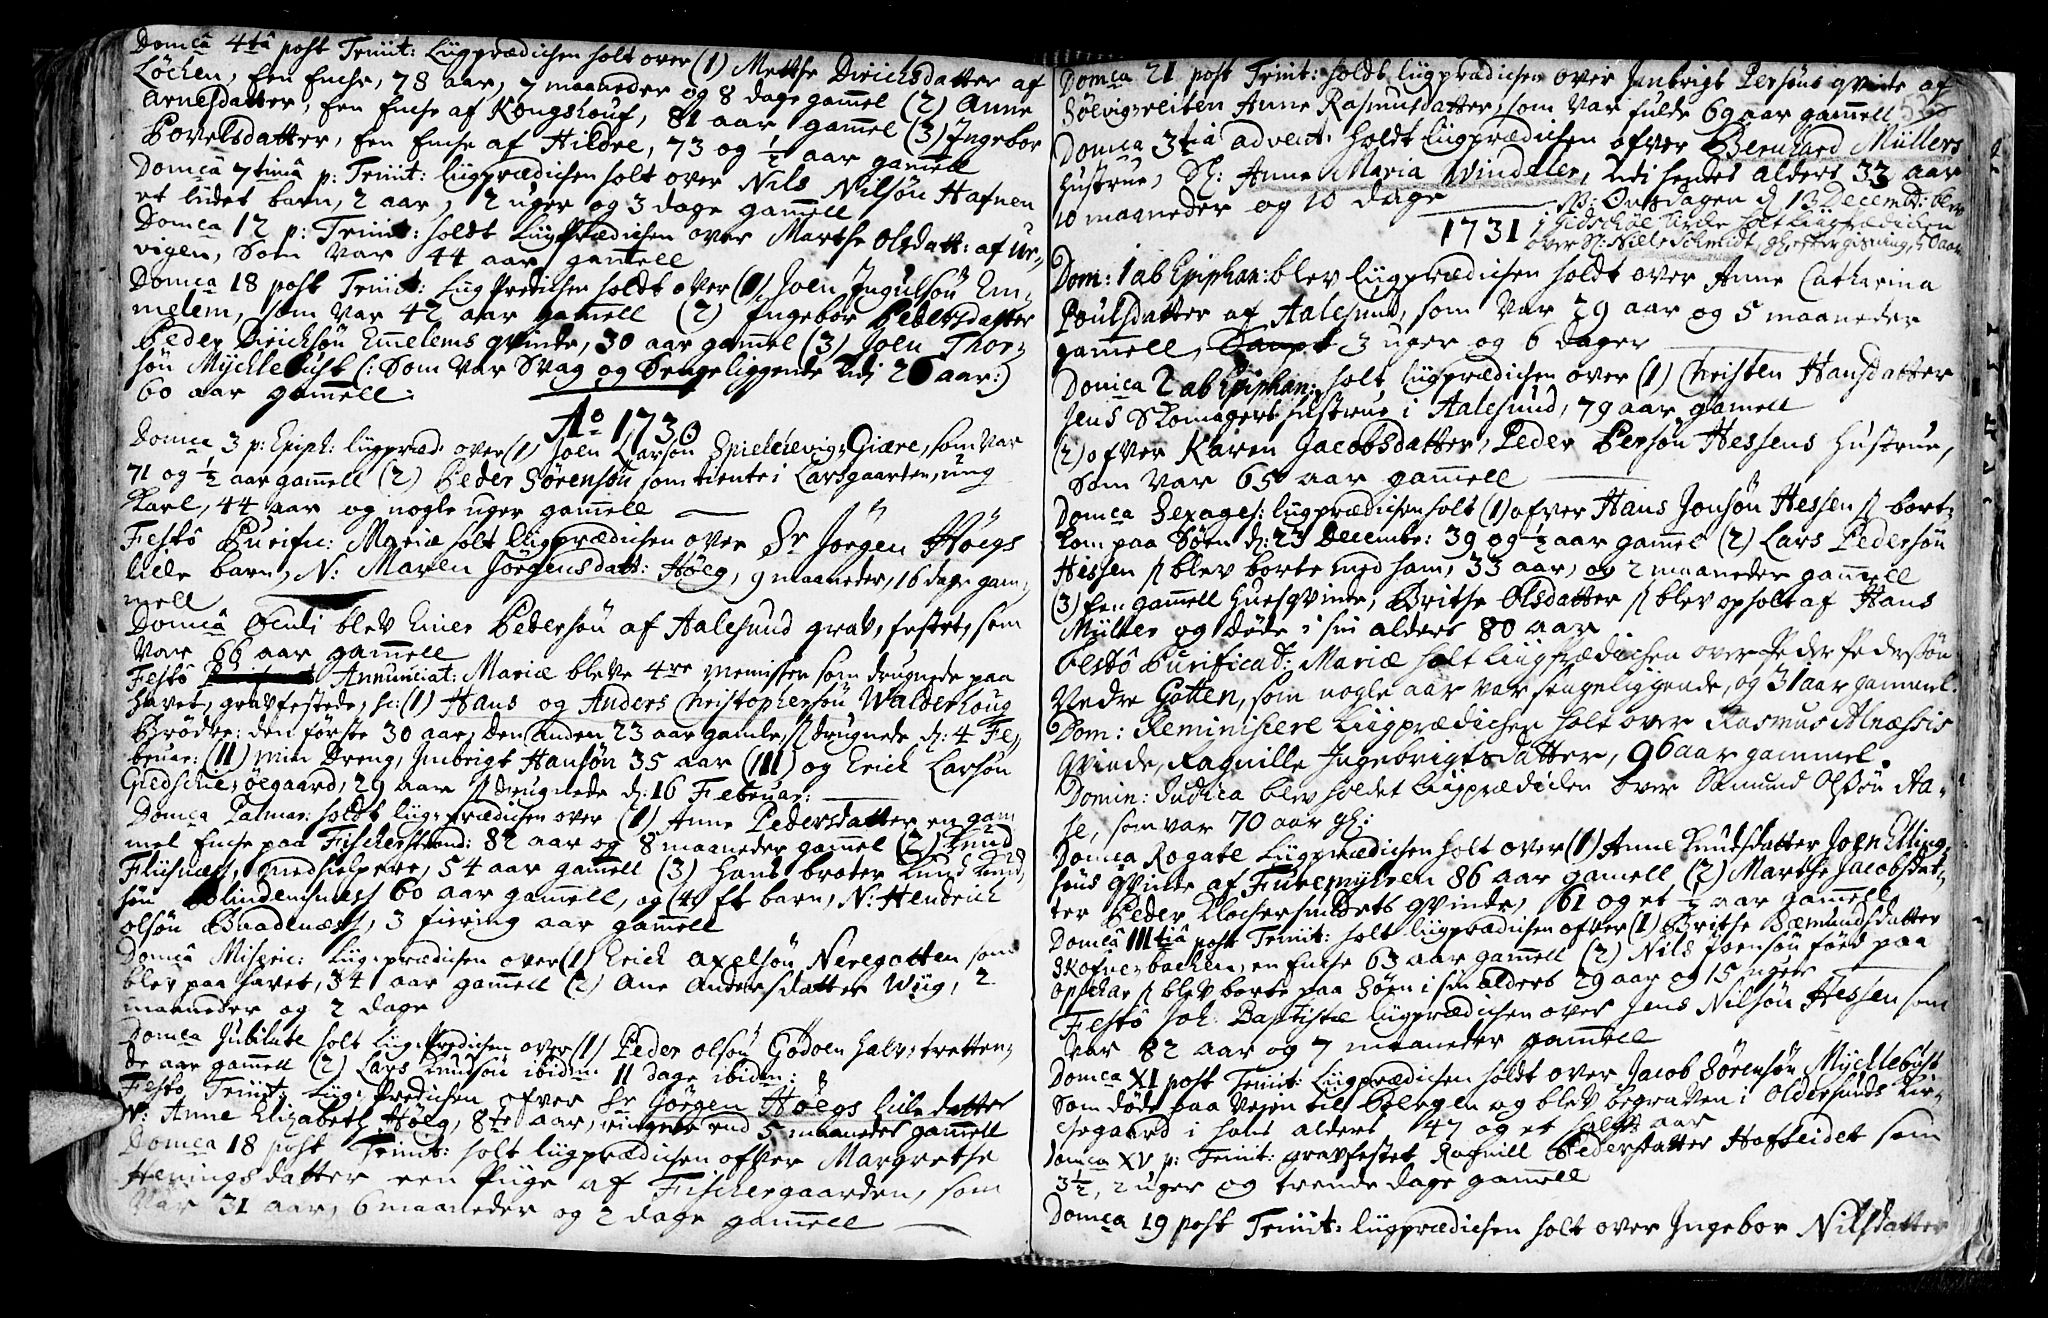 Domca 4ta post Triiit: Liigprædichen holt over (1) Metthe Dirichsdatter af
Löchen, Een Enche, 78 aar, 7 maaneder og 8 dage gam̅el (2) Anne
Arnesdatter, Een Enche af Kongshouf, 81 aar gam̅el (3) Ingebor
Povelsdatter, Een Enche af Hildre, 73 og ½ aar gam̅ell
Domca 7timâ p: Triiit: liigprædichen holt over Nils Nilsön Hafnen
et lidet barn, 2 aar, 2 uger og 3 dage gam̅ell
Domca 12 p: Triiit: holdt Liigprædichen over Marthe Olsdatt: af Ur-
vigen, Som var 44 aar gam̅ell
Domca 18 post Triiit: Liig Predichen holdt over (1) Joen Ingulsön Em-
melem, som var 42 aar gam̅ell (2) Ingebor Pedersdatter
Peder Dirichsön Em̅elems qvinde, 30 aar gam̅el (3) Joen Thor-
sön Myclebust (: Som var Svag og Sengeliggende udi 26 aar:)
60 aar gam̅ell.
Ao 1730
Domca 3 p: Epiph: liigpræd: over (1) Joen Larsön Spielchevig-Giære, som var
71 og ½ aar gam̅ell (2) Peder Sörensön som tiente i Larsgaarten, ung
Karl, 44 aar og nogle uger gam̅ell
Festô Purific: Mariæ holt liigprædichen over Sr Jörgen Höegs
lille barn, N: Maren Jörgensdatt: Höeg, 9 maaneder, 16 dage gam-
mell
Domcâ Oculi blev Einer Pedersön af Aalesund gravfestet, som
var 66 aar gam̅ell
Festô Annunciat: Mariæ bleve 4re Mennisker som drugnede paa
havet, gravfestede, sc: (1) Hans og Anders Christophersön Walderhoug
Brödre: den förste 30 aar, den anden 23 aar gamle, s drugnede d: 4 Fe-
bruar: (II) min Dreng, Imbrigt Hansön 35 aar (III) og Erick Larsön
Giedsche, öegaard, 29 aar s drugnede d: 16 Februar:
Domca Palmar: holdt liigprædichen over (1) Anne Pedersdatter en gam-
mel Enche paa Fischerstrand: 82 aar og 8 maaneder gam̅el (2) Knud
Fliisnæs, medhielpere, 54 aar gam̅ell (3) hans broder Knud Knud-
sön Blindemsnæss 60 aar gam̅ell, og (4) Et barn, N: Hendrich
olsön Baadenæss, 3 fiering aar gam̅ell
Domcâ Miseric: Liigprædichen over (1) Erich Axelsön Neregotten som
blev paa havet, 34 aar gam̅ell (2) Ane Andersdatter Wiig, 2
maaneder og 2 dage
Domca Jubilate holt Liig-Predichen over (1) Peder olsön Godöen halv-tretten-
de aar gam̅ell (2) Lars Knudsön ibidm: 11 dage ibidem:
Festo Triiit: Liig-Predichen ofver Sr Jörgen Höegs lille datter
N: Anne Elizabeth Höeg, 8te aar, ringere end 5 maaneder gam̅ell
Domca 18 post Triiit: holt liigprædichen ofver Margrethe
Heningsdatter een Piige af Fischergaarden, som
var 31 aar, 6 maaneder og 2 dage gam̅ell
Domca 21 post Triiit: holdt liigprædichen over Jmbrigt Persöns qvinde af
Sölvigsreiten Anne Rasmusdatter, som var fulde 69 aar gam̅ell
Domca 3tia advent: holdt liigprædichen ofver Bernhard Müllers
Hustrue, Sl: Anne Maria Windeler, udi hendes alders 33 aar
10 maaneder og 10 dage NB: Onsdagen d 13 Decembr: blev
1731 i Gidschöe Kirke holt Liigprædichen
over Sl: Niels Schmidt, gl: efter gisning, 50 aar
Dom: 1 ab Epiphan: blev liigprædichen holdt over Anne Catharina
Poulsdatter af Aalesund, som var 29 aar og 5 maaneder
gam̅ell, 3 uger og 6 dager
Domca 2 ab Epiphan: holt liigprædichen over (1) Christen Hansdatter
Jens Skomagers hustrue i Aalesund, 79 aar gam̅ell
(2) ofver Karen Jacobsdatter, Peder Persön Hessens Hustrue,
Som var 65 aar gam̅ell
Domca Sexages: liigprædichen holt (1) ofver Hans Jonsön Hessen s bort-
kom paa Söen d: 23 Decembr: 39 og ½ aar gam̅el (2) Lars Pedersön
Hessen s blev borte med ham, 33 aar, og 2 maaneder gam̅ell
(3) Een gam̅ell Huusqvinde, Brithe Olsdatter s blev opholt af Hans
Myller og döde i sin alders 80 aar
Festô Purificat: Mariæ holt Liigprædichen over Peder Pedersön
Nedre Gotten, som nogle aar var sengeliggende, og 31 aar gammel.
Dom: Reminiscere Liigprædichen holt over Rasmus Alnæssis
Qvinde, Ragnille Ingebrigtsdatter, 96 aar gammel.
Domin: Judica blev holdet Liigprædiken over Sæmund Olssön Aa-
se, som var 70 aar gl:
Domca Rogate Liigprædichen holt over (1) Anne Knudsdatter Joen Elling-
söns Qvinde af Furemyhren 86 aar gam̅ell (2) Marthe Jacobsdat-
ter Peder Klochersmeds qvinde, 61 og et ½ aar gam̅ell
Domcâ IIItiâ post Triiit: holt liigprædichen ofver (1) Brithe Sæmundsdatter
Skofve-bachen, en Enche 63 aar gam̅ell (2) Nils Joensön föed paa
opschar s blev borte paa Söen i sin alders 29 aar og 15 uger
Festô Joh: Baptistæ liigprædichen over Jens Nilsön Hessen som
var 82 aar og 7 maaneder gam̅ell
Domca XI post Triiit: Liigprædichen holdt over Jacob Sörensön Mycklebust
Som döde paa Veien til Bergen og blev begraven i Oldersunds kir-
chegaard i hans alders 47 og et halft aar
Domca XV p: Triiit: gravfestet Ragnill Pedersdatter Hofseidet som
3½, 2 uger og trende dage gam̅ell
Domca 19 post Triiit: liigprædichen holt over Ingebor Nilsdatter